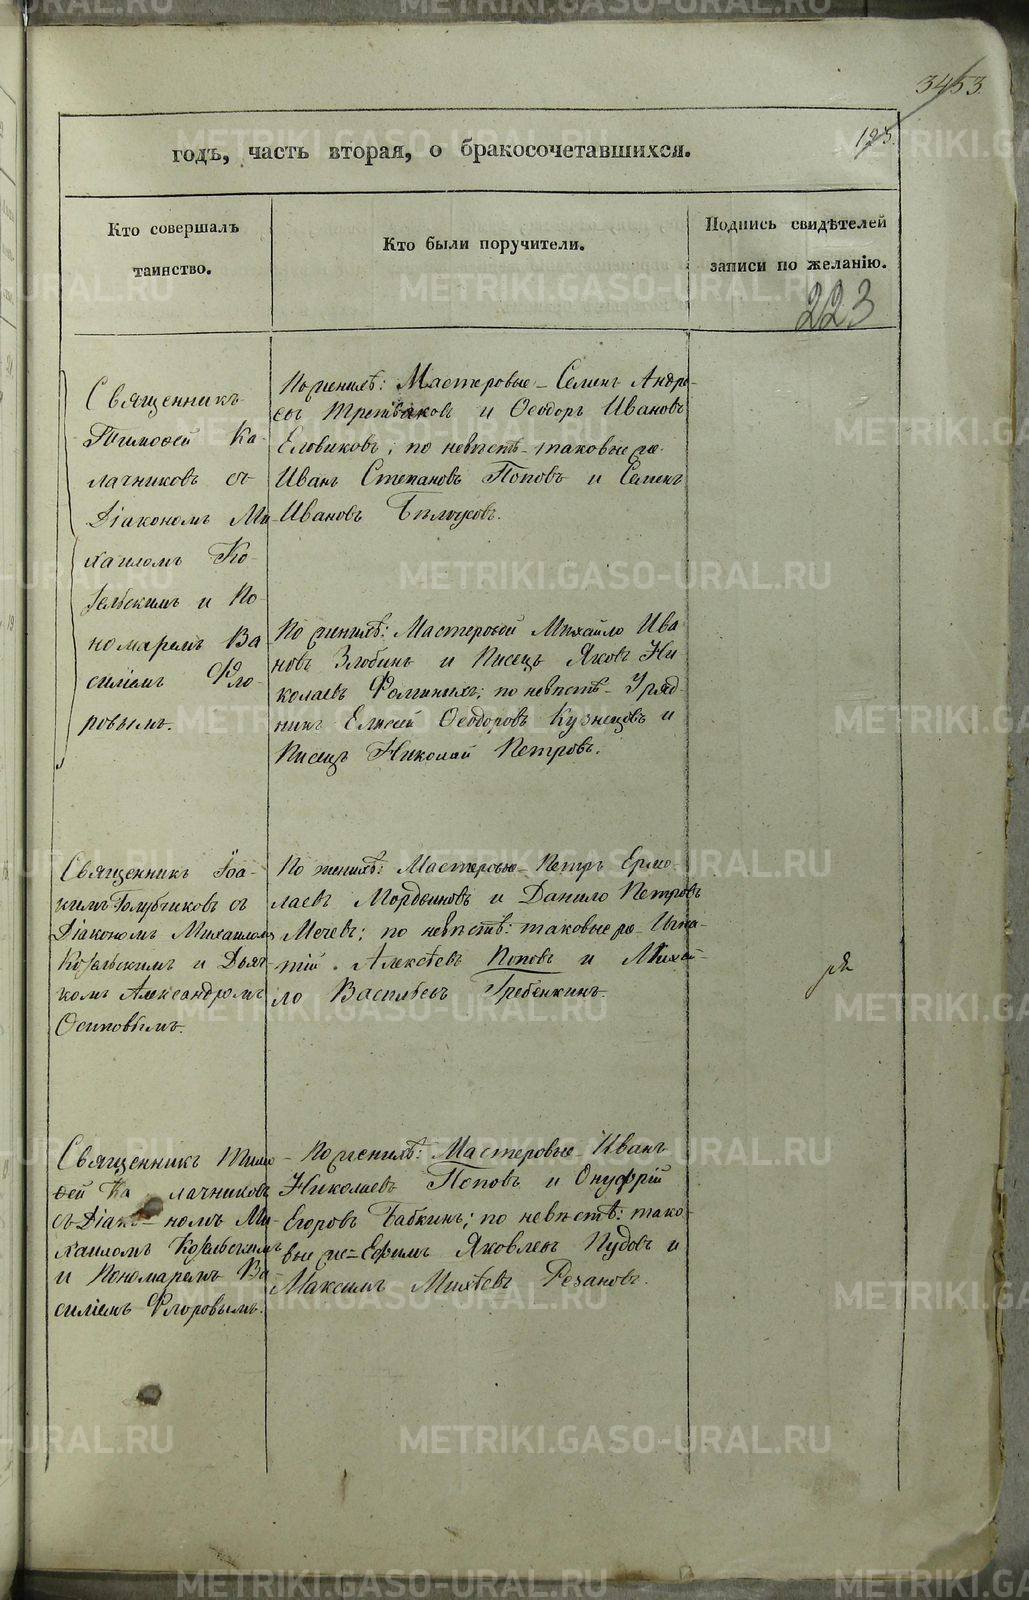 3453
123.
годъ, часть вторая, о бракосочетавшихся.
Кто совершалъ
таинство.
Кто были поручители.
Подпись свидѣтелей
записи по желанію.
223
Священникъ
Тимофей Ка-
лачниковъ съ
Діакономъ Ми-
хаиломъ Ко-
зельскимъ и По-
номаремъ Ва-
силіемъ Фло-
ровымъ.
По женихѣ: Мастеровые – Семенъ Андре-
евъ Третьяковъ и Ѳеодоръ Ивановъ
Еловиковъ; по невѣстѣ – таковые же
Иванъ Степановъ Поповъ и Семенъ
Ивановъ
По женихѣ: Мастеровой Михайло Ива
новъ Злобинъ и Писецъ Яковъ Ни
колаевъ Фоминыхъ; по невѣстѣ – Уряд-
никъ Елисей Ѳеодоровъ Кузнецовъ и
Писецъ Николай Петровъ.
Священникъ Іоа-
кимъ Голубчиковъ съ
Діакономъ Михаиломъ
Козельскимъ и Дьяч
комъ Александромъ
Осиповымъ.
По женихѣ: Мастеровые – Петръ Ермо-
лаевъ Мордвиновъ и Данило Петровъ
Мочевъ; по невѣстѣ: таковые же – Игна-
тій Алексѣевъ Поповъ и Михай-
ло Васильевъ Гребенкинъ.
Священникъ Тимо
ѳей Ка лачниковъ
съ Діако номъ Ми-
хаиломъ Козельскимъ
и Пономаремъ Ва-
силіемъ Флоровымъ.
По женихѣ: Мастеровые – Иванъ
Николаевъ Поповъ и Онуфрій
Егоровъ Бабкинъ; по невѣстѣ: тако-
вые же – Ефимъ Яковлевъ Пудовъ и
Максимъ Михѣевъ Резановъ.
METRIKI.GASO-URAL.RU